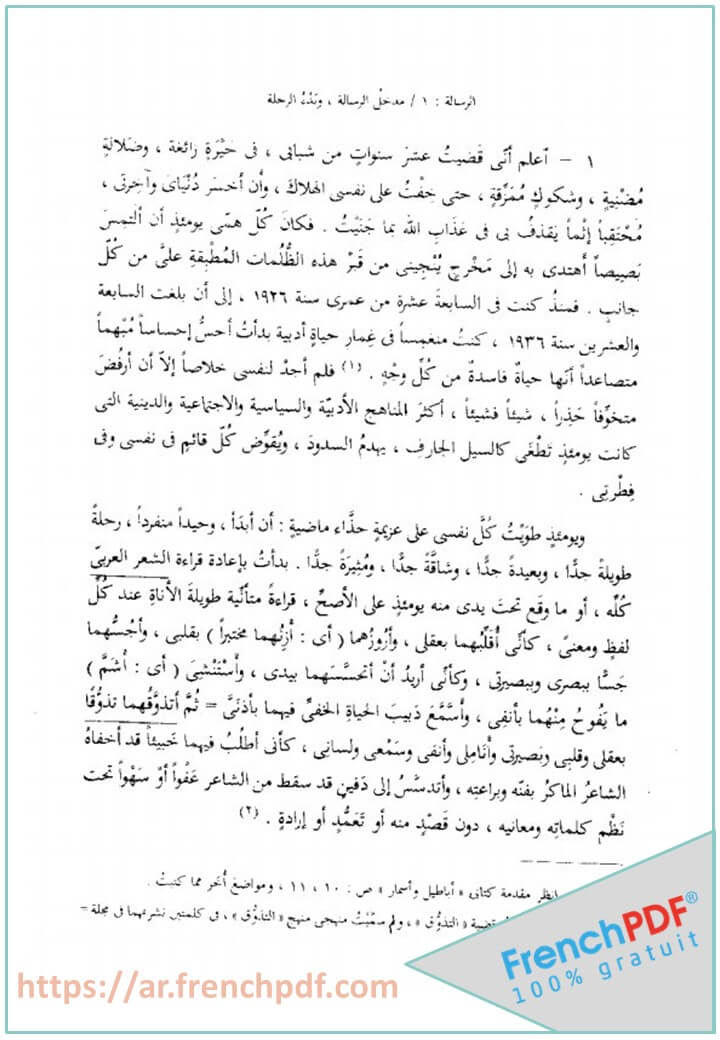 الرسالة : ١ / مدخل الرسالة ، وبَدْءُ الرحلة
١ – أعلم أنّى قَضيتُ عشرَ سنواتٍ من شبابى ، فى حَيْرَةٍ زائغة ، وضَلالةٍ
مُضْنِيةٍ ، وشكوكٍ مُمَزِّقةٍ ، حتى خِفْتُ على نفسى الهلاكَ ، وأن أخسَرَ دُنْيَاىَ وآخِرتى ،
مُحْتَقِباً إثْماً يَقذفُ بى فى عَذَابِ الله بما جَنَيْتُ . فكانَ كُلّ همّى يومئذٍ أن ألتمِسَ
بَصِيصاً أَهتدى به إلى مَخْرجٍ يُنْجِينى من قَبْرِ هذه الظُّلُمات المُطْبِقةِ علىَّ من كُلّ
جانبٍ . فمنذُ كنت فى السابعةَ عشرة من عمرى سنة ١٩٢٦ ، إلى أن بلغت السابعة
والعشرين سنة ١٩٣٦ ، كنتُ منغمِساً فى غِمارِ حياةٍ أدبية بدأتُ أحسُّ إحساساً مُبْهماً
متصاعداً أنّها حياةٌ فاسدةٌ من كُلِّ وجْهٍ . (١) فلم أجدْ لنفسى خلاصاً إلاّ أن أرفُضَ
متخوِّفاً حَذِراً ، شيئاً فشيئاً ، أكثرَ المناهج الأدبيّة والسياسية والاجتماعية والدينية التى
كانت يومئذٍ تَطْغَى كالسيل الجارفِ ، يهدمُ السدودَ ، ويُقوِّض كُلّ قائمٍ فى نفسى وفى
فِطْرتِى .
ويومئذٍ طوَيْتُ كُلَّ نفسى على عزيمةٍ حذَّاء ماضيةٍ : أن أبدَأ ، وحيداً منفرداً ، رحلةً
طويلةً جدًّا ، وبعيدةً جدًّا ، وشاقَّةً جدًّا ، ومُثِيرَةً جدًّا . بدأتُ بإعادة قراءة الشعر العربىّ
كُلِّه ، أو ما وقَع تحتَ يدى منه يومئذٍ على الأصحِّ ، قراءةً متأنّية طويلةَ الأناةِ عند كُلِّ
لفظٍ ومعنىً ، كأنّى أُقَلِّبُهما بعقلى ، وأرُوزُهما ( أى : أزِنُهما مختبراً ) بقلبى ، وأجُسُّهما
جَسًّا ببصرى وببصيرتى ، وكأنّى أريدُ أنْ أتحسَّسَهما بيدى ، وأسْتَنْشِىَ ( أى : أشَمَّ )
ما يَفُوحُ مِنْهُما بأنفِى ، وأسَّمَّع دَبيبَ الحياةِ الخفىِّ فيهما بأُذنَىَّ = ثُمَّ أتذوَّقُهما تذوُّقًا
بعقلى وقلبى وبَصيرتى وأنَامِلى وأنفى وسَمْعى ولسانِى ، كأنى أطلُبُ فيهما خَبيئاً قد أخفاهُ
الشاعرُ الماكرُ بفنّه وبراعتِه ، وأتدسَّسُ إلى دَفينٍ قد سقط من الشاعر عَفْواً أوْ سَهْواً تحت
نَظْمِ كلماتِه ومعانيه ، دون قَصْدٍ منه أو تَعَمُّدٍ أو إرادةٍ . (٢)
انظر مقدمة كتابى « أباطيل وأسمار » ص : ١٠ ، ١١ ، ومواضعَ أُخَر مما كتبتُ .
« التذوُّق » ، ولم سمَّيْتُ منهجى منهج « التذوُّق » ، فى كلمتين نشرتهما فى مجلة =
FrenchPDF®
100% gratuit
https://ar.frenchpdf.com